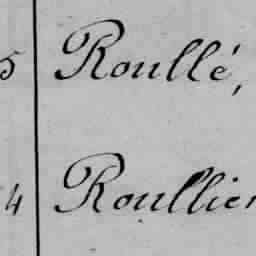 5 Roullé,
4 Roullier